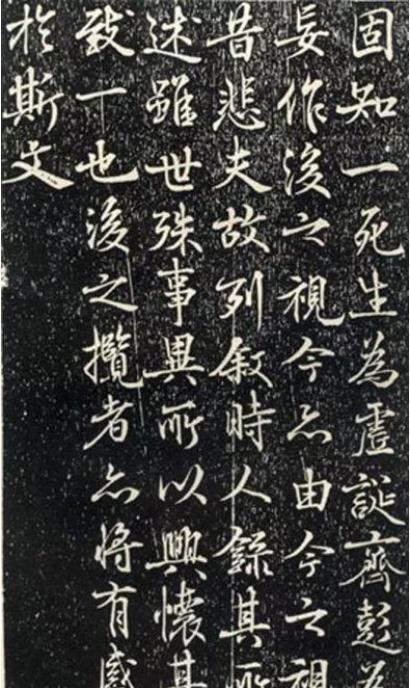 固知一死生為虛誕齊彭為
妄作後之視今亦由今之視
昔悲夫故列叙時人錄其所
述雖世殊事異所以興懷其
致一也後之攬者亦將有感
於斯文